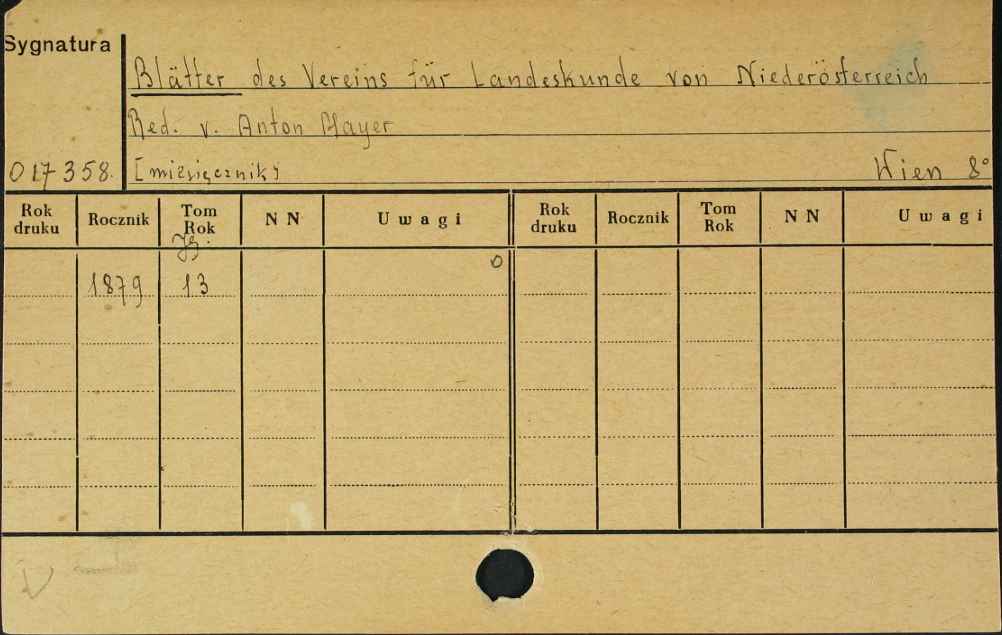 Sygnatura
Blätter des Vereins für Landeskunde von Niederösterreich
Red. v. Anton Mayer
017358. [miesięcznik] Wien 8°
Rok druku Rocznik Tom Rok NN Uwagi Rok druku Rocznik Tom Rok NN Uwagi
Jg.
1879 13